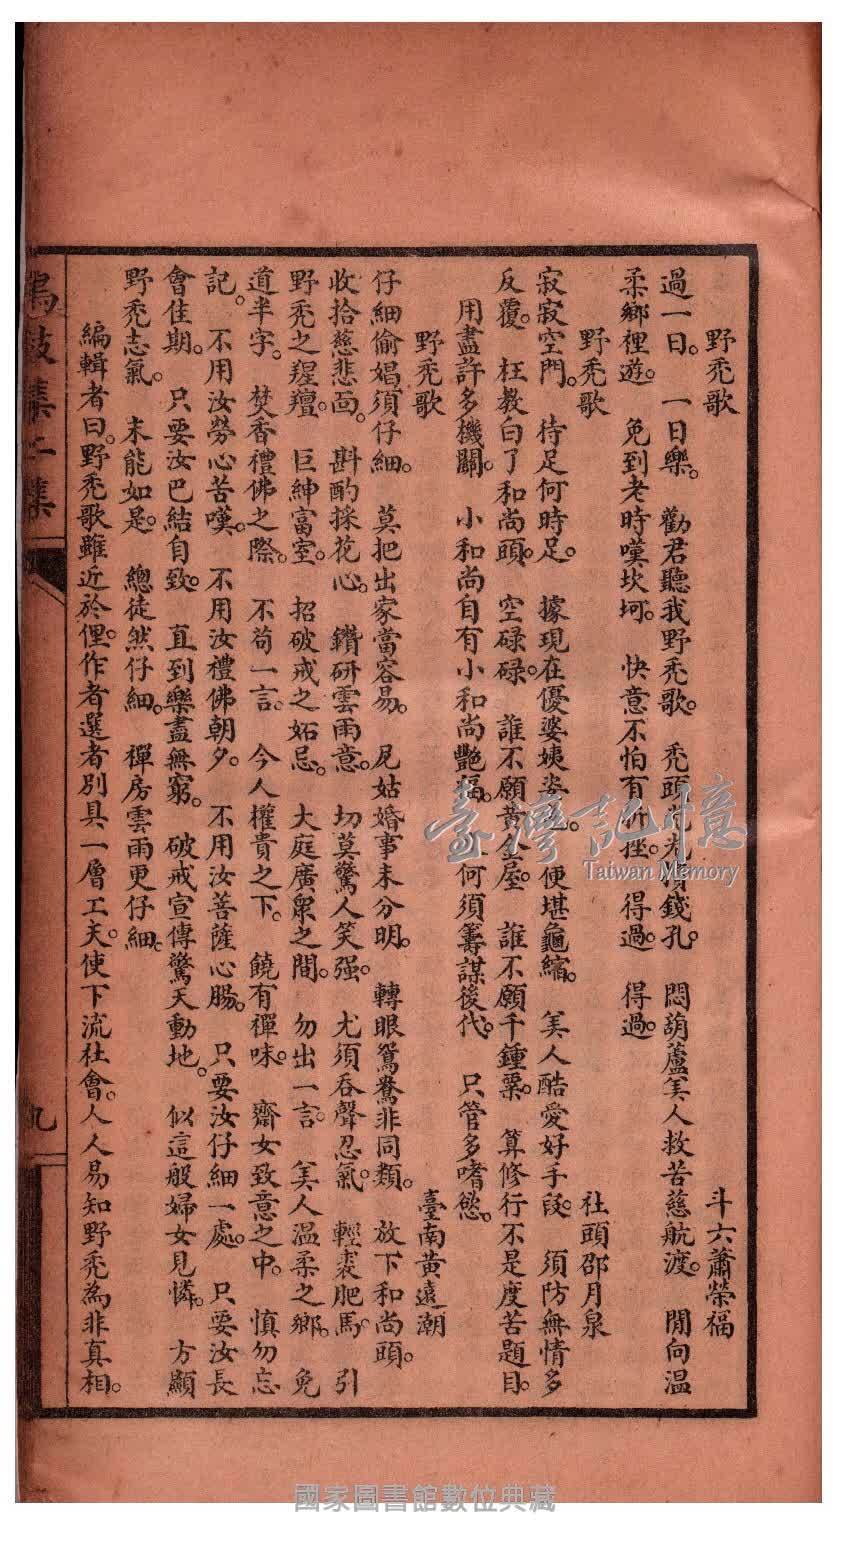 野禿歌　斗六蕭榮福
過一日。一日樂。勸君聽我野禿歌。禿頭 錢孔。悶葫蘆美人救苦慈航渡。閒向溫
柔鄉裡遊。免到老時嘆坎坷。快意不怕有 挫。得過。得過。
野禿歌　社頭邵月泉
寂寂空門。待足何時足。據現在優婆姨姿色。便堪龜縮。美人酷愛好手段。須防無情多
反覆。枉教白了和尚頭。空碌碌。誰不願黃金屋。誰不願千鍾粟。算修行不是度苦題目。
用盡許多機關。小和尚自有小和尚艷福。何須籌謀後代。只管多嗜慾。
野禿歌　臺南黃遠潮
仔細偷娼須仔細。莫把出家當容易。尼姑婚事未分明。轉眼鴛鴦非同類。放下和尚頭。
收拾慈悲面。斟酌採花心。鑽研雲雨意。切莫驚人笑强。尤須吞聲忍氣。輕裘肥馬。引
野禿之羶。巨紳富室。招破戒之妬忌。大庭廣衆之間。勿出一言。美人溫柔之鄉。免
道半字。焚香禮佛之際。不苟一言。今人權貴之下。饒有禪味。齋女致意之中。慎勿忘
記。不用汝勞心苦嘆。不用汝禮佛朝夕。不用汝菩薩心腸。只要汝仔細一處。只要汝長
會佳期。只要汝巴結自致。直到樂盡無窮。破戒宣傳驚天動地。似這般婦女見憐。方顯
野禿志氣。未能如是。總徒然仔細。禪房雲雨更仔細。
編輯者曰。野禿歌雖近於俚。作者選者別具一層工夫。使下流社會。人人易知野禿為非真相。
鳴鼓集二集
九
臺灣記憶
Taiwan Memory
國家圖書館數位典藏